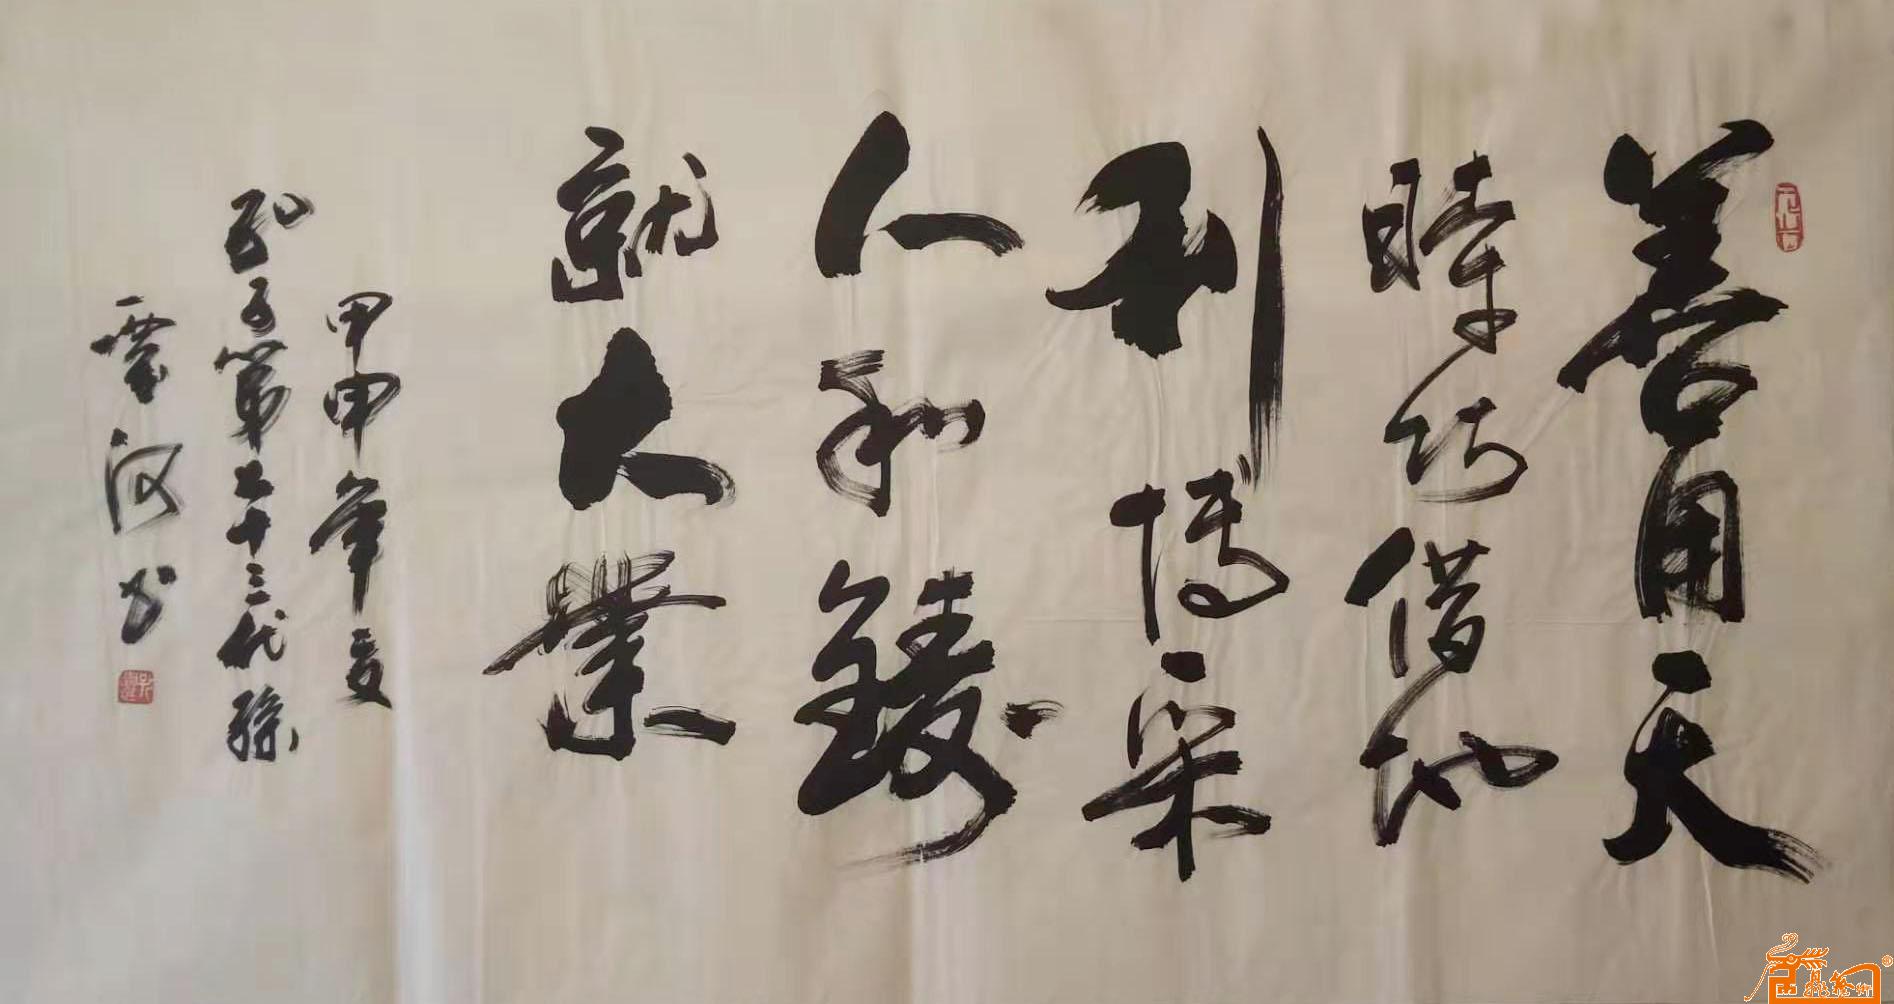 善用天
時巧借地
利博采
人和鑄
就大業
甲申年夏
孔子第七十三代孫
雲河书